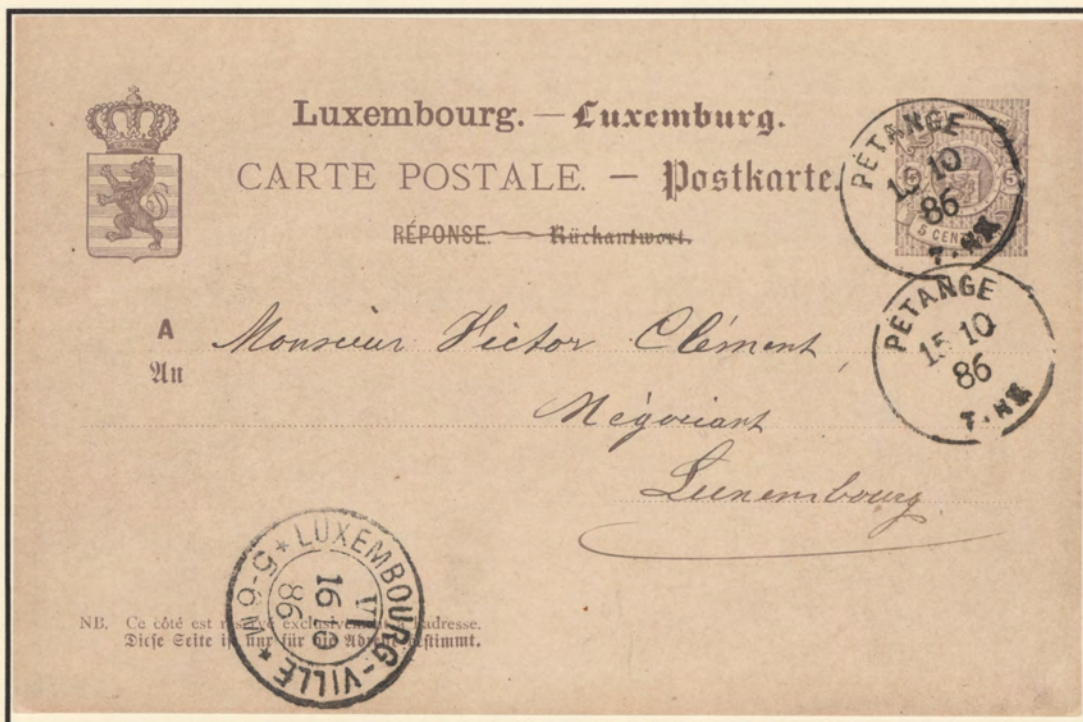 Luxembourg. — Luxemburg.
CARTE POSTALE. — Postkarte.
RÉPONSE. — Rückantwort.
5 CEN
PÉTANGE
15 10
86
PÉTANGE
15 10
86
A
An
Monsieur Victor Clément,
Négociant
Luxembourg
LUXEMBOURG-VILLE
VI
16 10
86
5-6 M
NB. Ce côté est réservé exclusivement à l'adresse.
Diese Seite ist nur für die Adresse bestimmt.